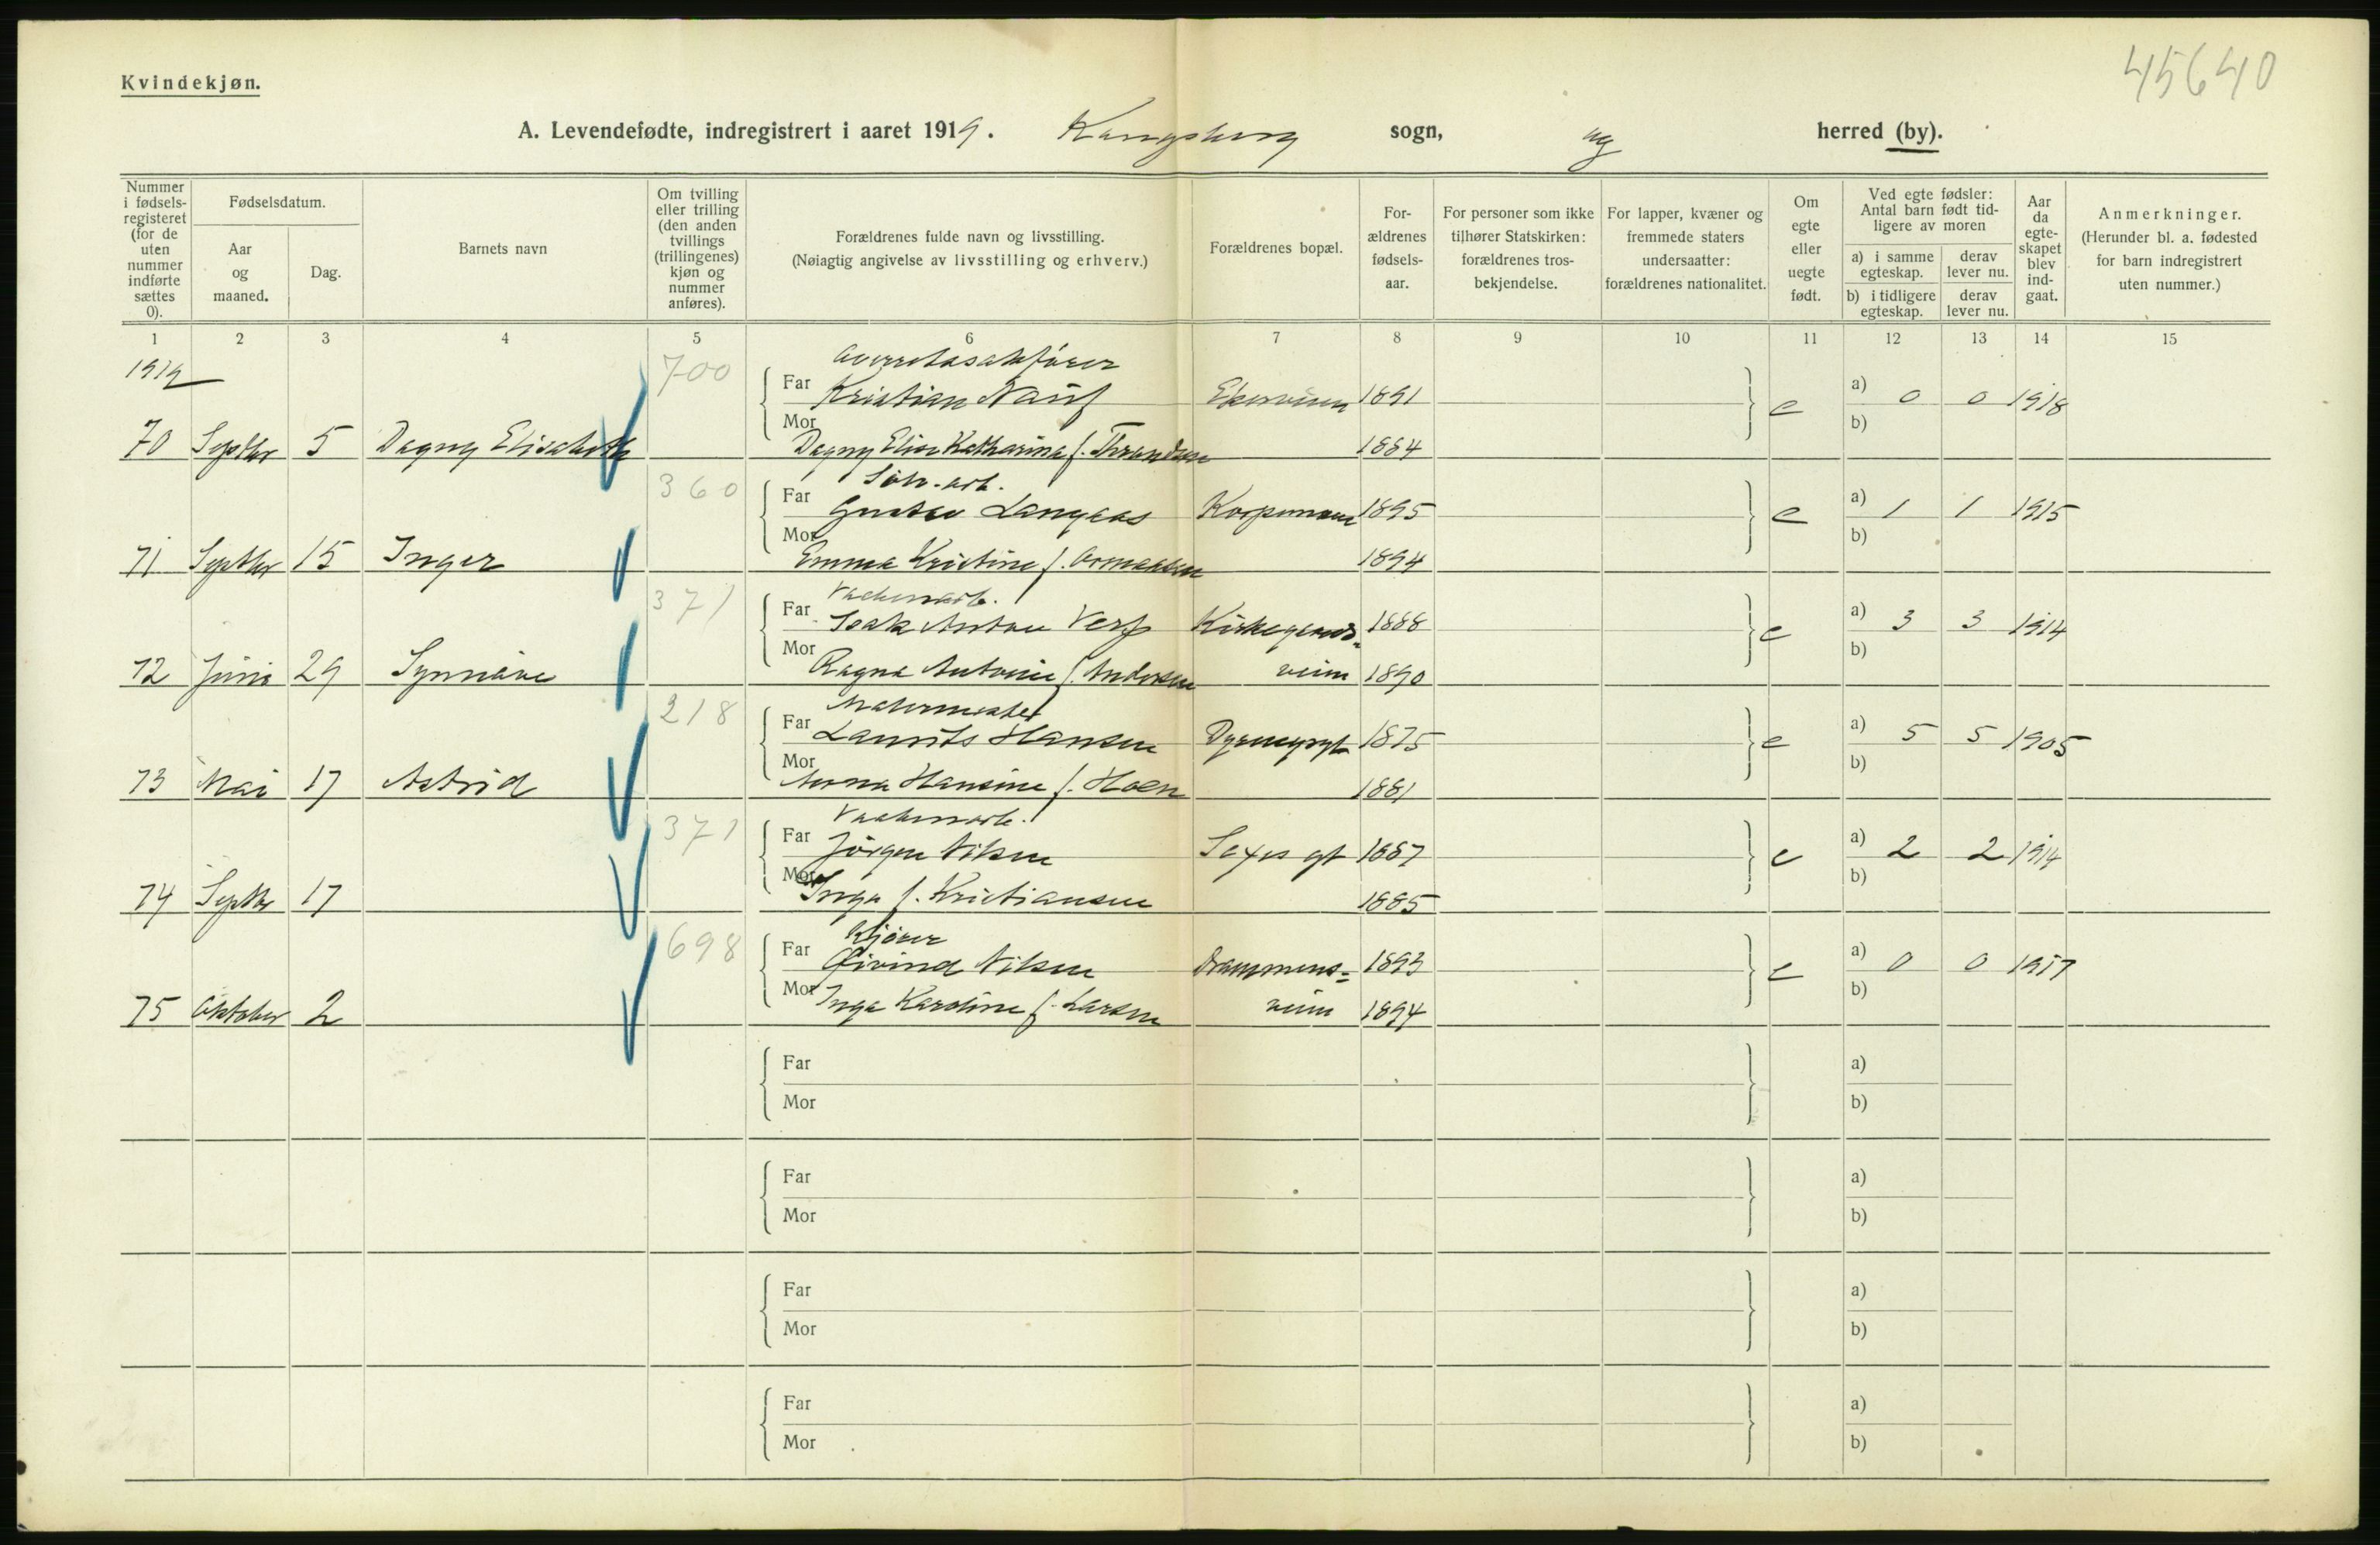 45640
Kvindekjøn.
A. Levendefødte, indregistrert i aaret 1919. Kongsberg sogn, og herred (by).
Nummer i fødsels-registeret (for de uten nummer indførte sættes 0).
Fødselsdatum.
Aar og maaned.
Dag.
Barnets navn
Om tvilling eller trilling (den anden tvillings (trillingenes) kjøn og nummer anføres).
Forældrenes fulde navn og livsstilling.
(Nøiagtig angivelse av livsstilling og erhverv.)
Forældrenes bopæl.
For-ældrenes fødsels-aar.
For personer som ikke tilhører Statskirken: forældrenes tros-bekjendelse.
For lapper, kvæner og fremmede staters undersaatter: forældrenes nationalitet.
Om egte eller uegte født.
Ved egte fødsler: Antal barn født tid-ligere av moren
a) i samme egteskap. derav lever nu.
b) i tidligere egteskap. derav lever nu.
Aar da egte-skapet blev ind-gaat.
Anmerkninger.
(Herunder bl. a. fødested for barn indregistrert uten nummer.)
1 2 3 4 5 6 7 8 9 10 11 12 13 14 15
1919 700 Overretssakfører
Far Kristian 1891 e a) 0 0 1918
Mor b)
70 Septbr 5 Dagny Elisabeth Dagny Elise Katharina f. 1884
360 Sølv. arb.
Far Gustav Langaas 1895 e a) 1 1 1915
Mor b)
71 Septbr 15 Inger Emma Kristine f. 1894
371 Vaabenarb.
Far Isak Anton 1888 e a) 3 3 1914
Mor b)
72 Juni 29 Synnøve Ragna Antonie f. Andersen veien 1890
218 Malermester
Far Laurits Hansen Dyrmyrgt 1875 e a) 5 5 1905
Mor b)
73 Mai 17 Astrid Anna Hansine f. Hoen 1881
371 Vaabenarb.
Far Jørgen Nilsen gt 1887 e a) 2 2 1914
Mor b)
74 Septbr 17 Inga f. Kristiansen 1885
698 Kjører
Far Øivind Nilsen Drammens= 1893 e a) 0 0 1917
Mor b)
75 Oktober 2 Inga Karoline f. Larsen veien 1894
Far a)
Mor b)
Far a)
Mor b)
Far a)
Mor b)
Far a)
Mor b)